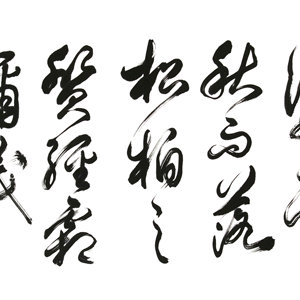 秋而落
松柏之
質經霜
彌茂